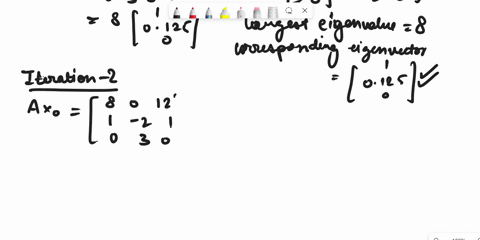 = 8 [ 1
0.125
0 ]
largest eigenvalue = 8
corresponding eigenvector
= [ 1
0.125
0 ]
Iteration-2
Ax₀ = [ 8 0 12
1 -2 1
0 3 0 ]